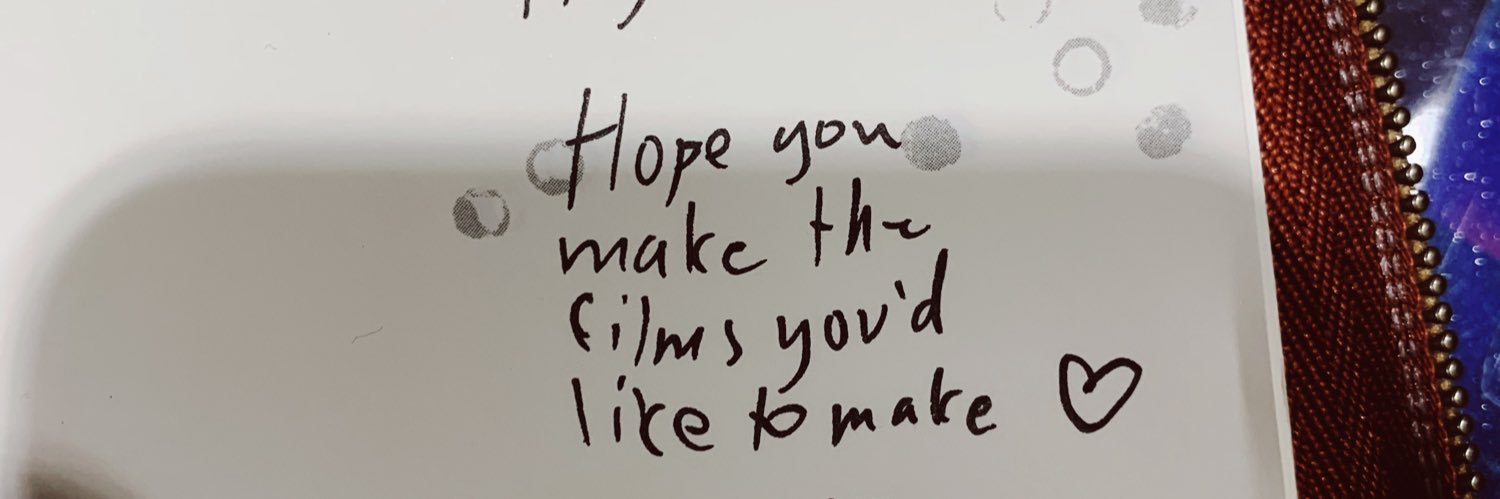 Hope you
make the
films you'd
like to make ♡